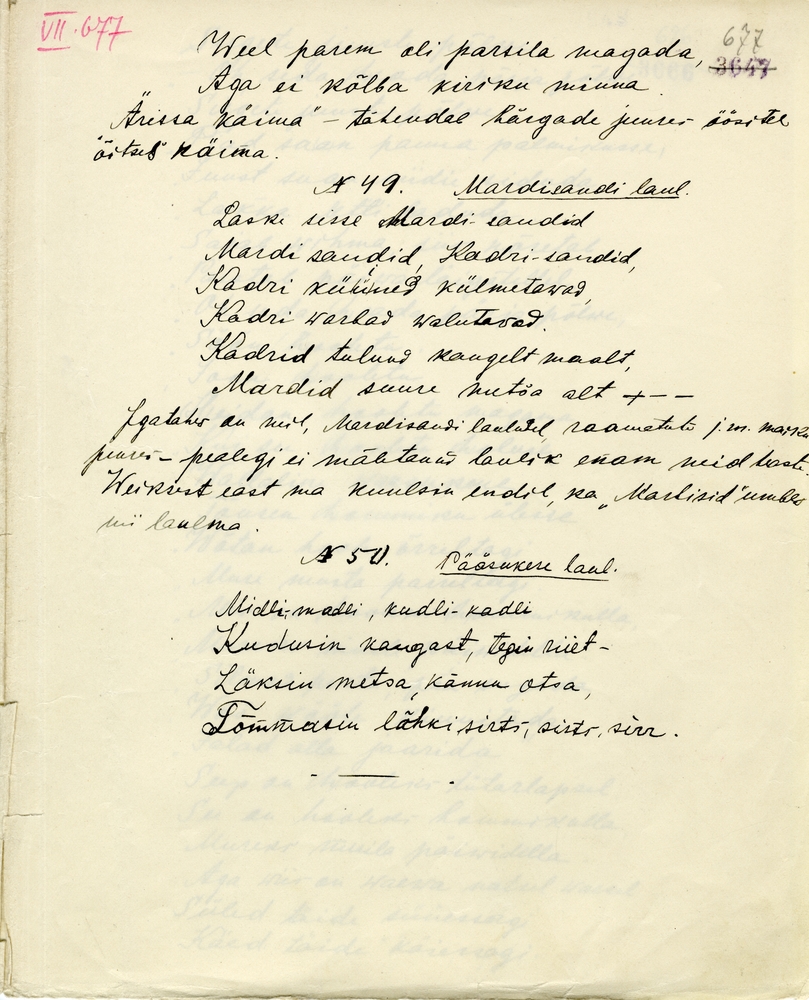 VII.677
677
3647
Weel parem oli parsila magada,
Aga ei kõlba kiriku minna.
"Ärissa käima" – tähendab härgade juures öösitel
"õitsel" käima.
№ 49. Mardisandi laul.
Laske sisse Mardi-sandid
Mardi sandid, Kadri-sandid,
Kadri küüned külmetawad,
Kadri warbad walutavad.
Kadrid tulnud kaugelt maalt,
Mardid suure metsa alt +--
Igatahes on neil, Mardisandi lauludel, raamatute j.m.
juures – pealegi ei mäletanud laulik enam neid hästi.
Weiksest east ma kuulsin endil, ka "Martisid" umbes
nii laulma.
№ 50. Pääsukese laul.
Midli-madli, kudli-kadli
Kudusin kangast, tegin riiet –
Läksin metsa, kännu otsa,
Tõmmasin lõhki sirts, sirts, sirr.